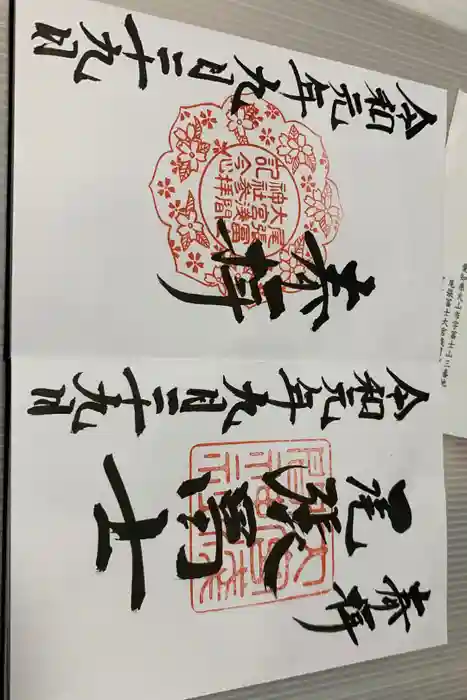 奉拝
尾張冨士
令和元年九月二十九日
奉拝
大宮浅間
神社参拝
記念
令和元年九月二十九日
愛知県犬山市字富士山三番地
尾張冨士大宮浅